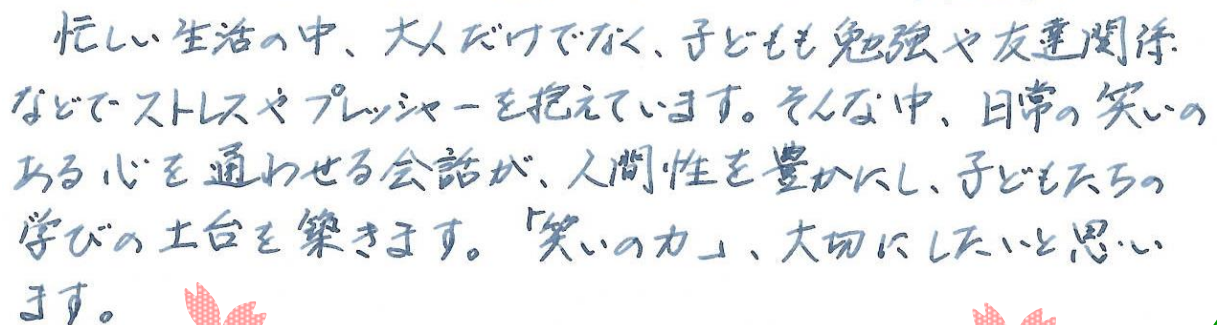 忙しい生活の中、大人だけでなく、子どもも勉強や友達関係
などでストレスやプレッシャーを抱えています。そんな中、日常の笑いの
ある心を通わせる会話が、人間性を豊かにし、子どもたちの
学びの土台を築きます。「笑いの力」、大切にしたいと思い
ます。